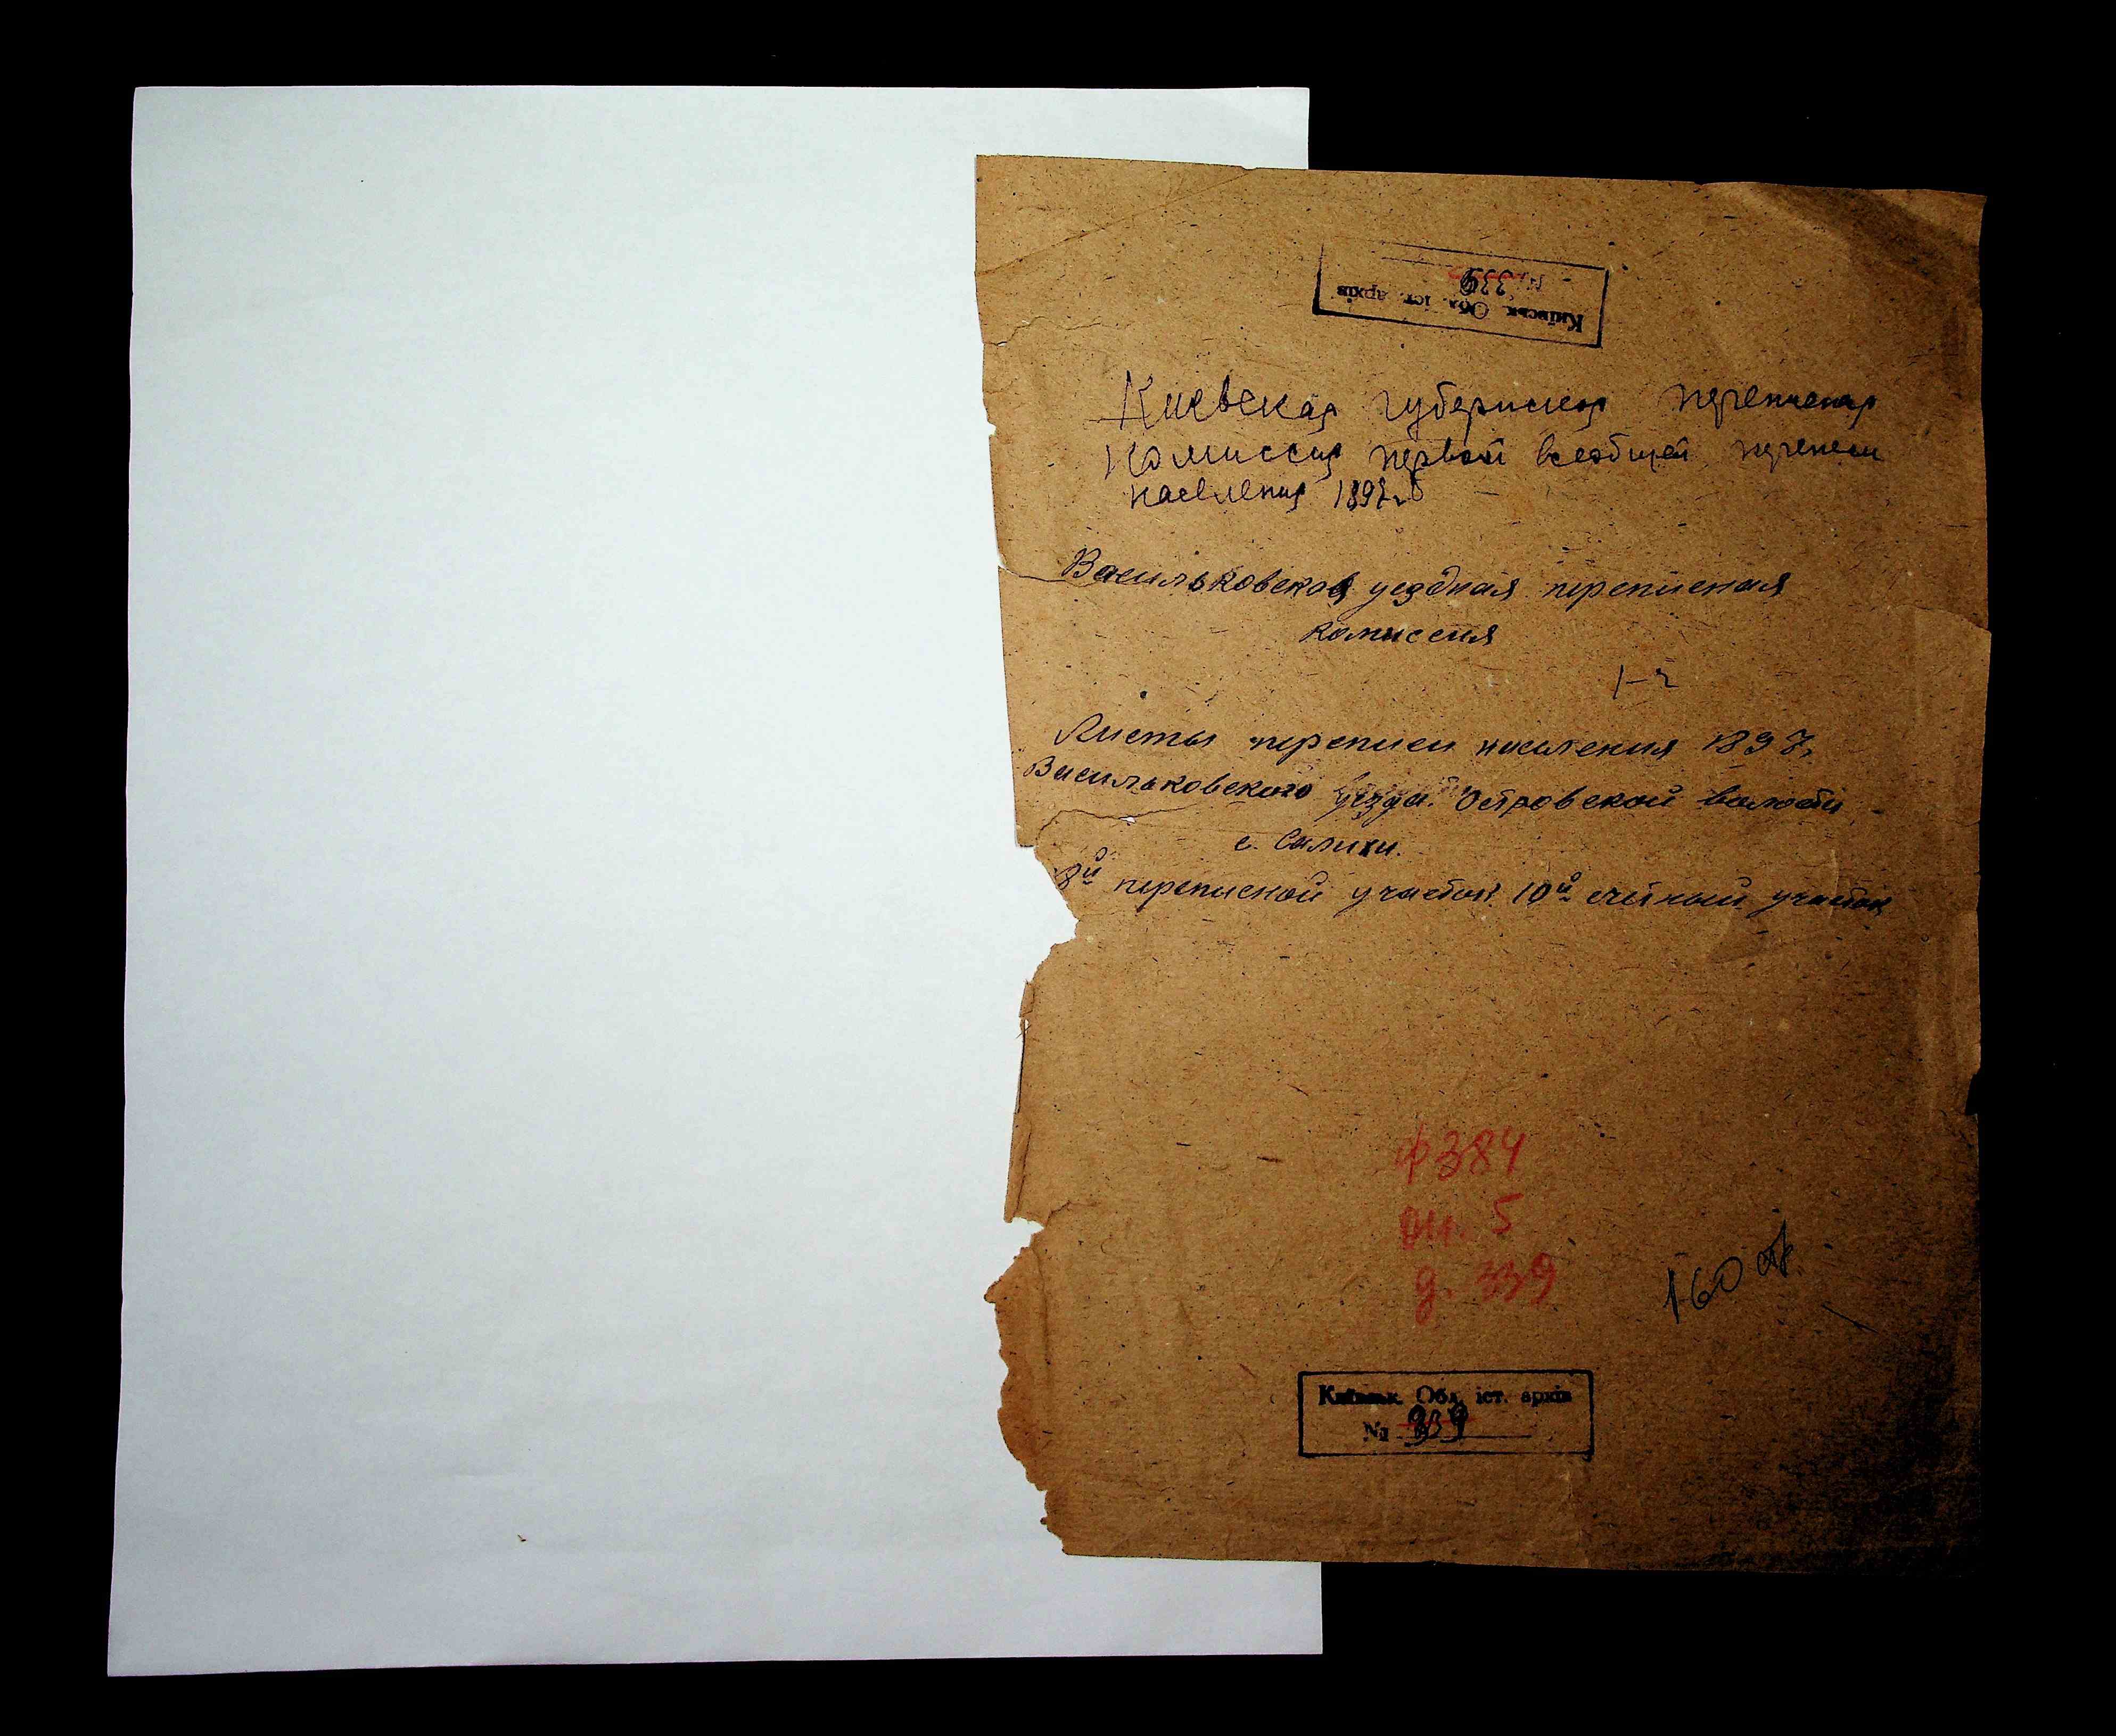 Київськ. Обл. іст. архів
№ 339
Киевская губернская переписная
комиссия первой всеобщей переписи
населения 1897 г.
Васильковская уездная переписная
комиссия
Листы переписи населения 1897 г.
Васильковского уезда. Островской волости
с. Салихи.
8й переписной участок 10й счетный участок
ф 384
оп. 5
д. 339
160 лл.
Київськ. Обл. іст. архів
№ 339